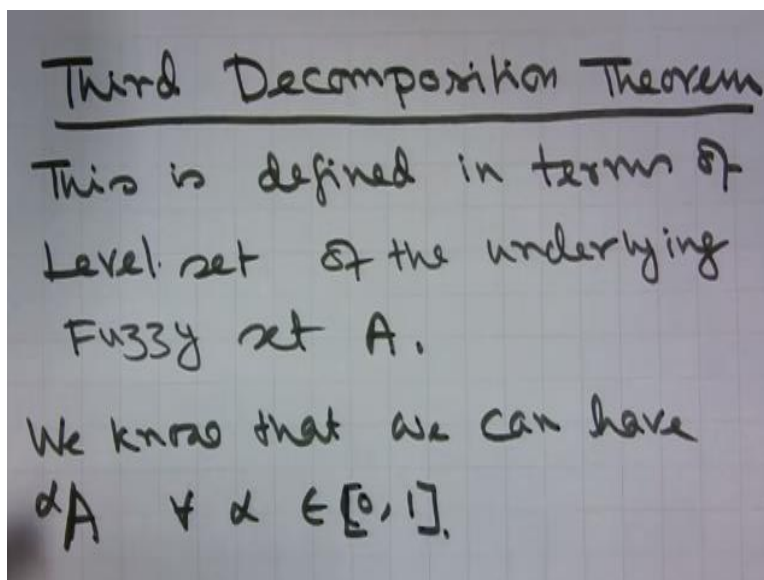 Third Decomposition Theorem
This is defined in terms of
Level set of the underlying
Fuzzy set A.
We know that we can have
ᵅA ∀ α ∈ [0, 1].